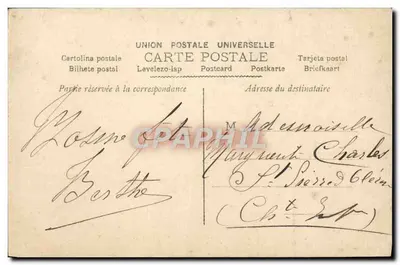 UNION POSTALE UNIVERSELLE
CARTE POSTALE
Cartolina postale Tarjeta postal
Bilhete postal Levelezo-lap Postcard Postkarte Briefkaart
Partie réservée à la correspondance Adresse du destinataire
Bonne fête
Berthe
Mademoiselle
Marguerite Charles
St Pierre d'Oléron
(Chte Infre)
CPAPHIL.COM